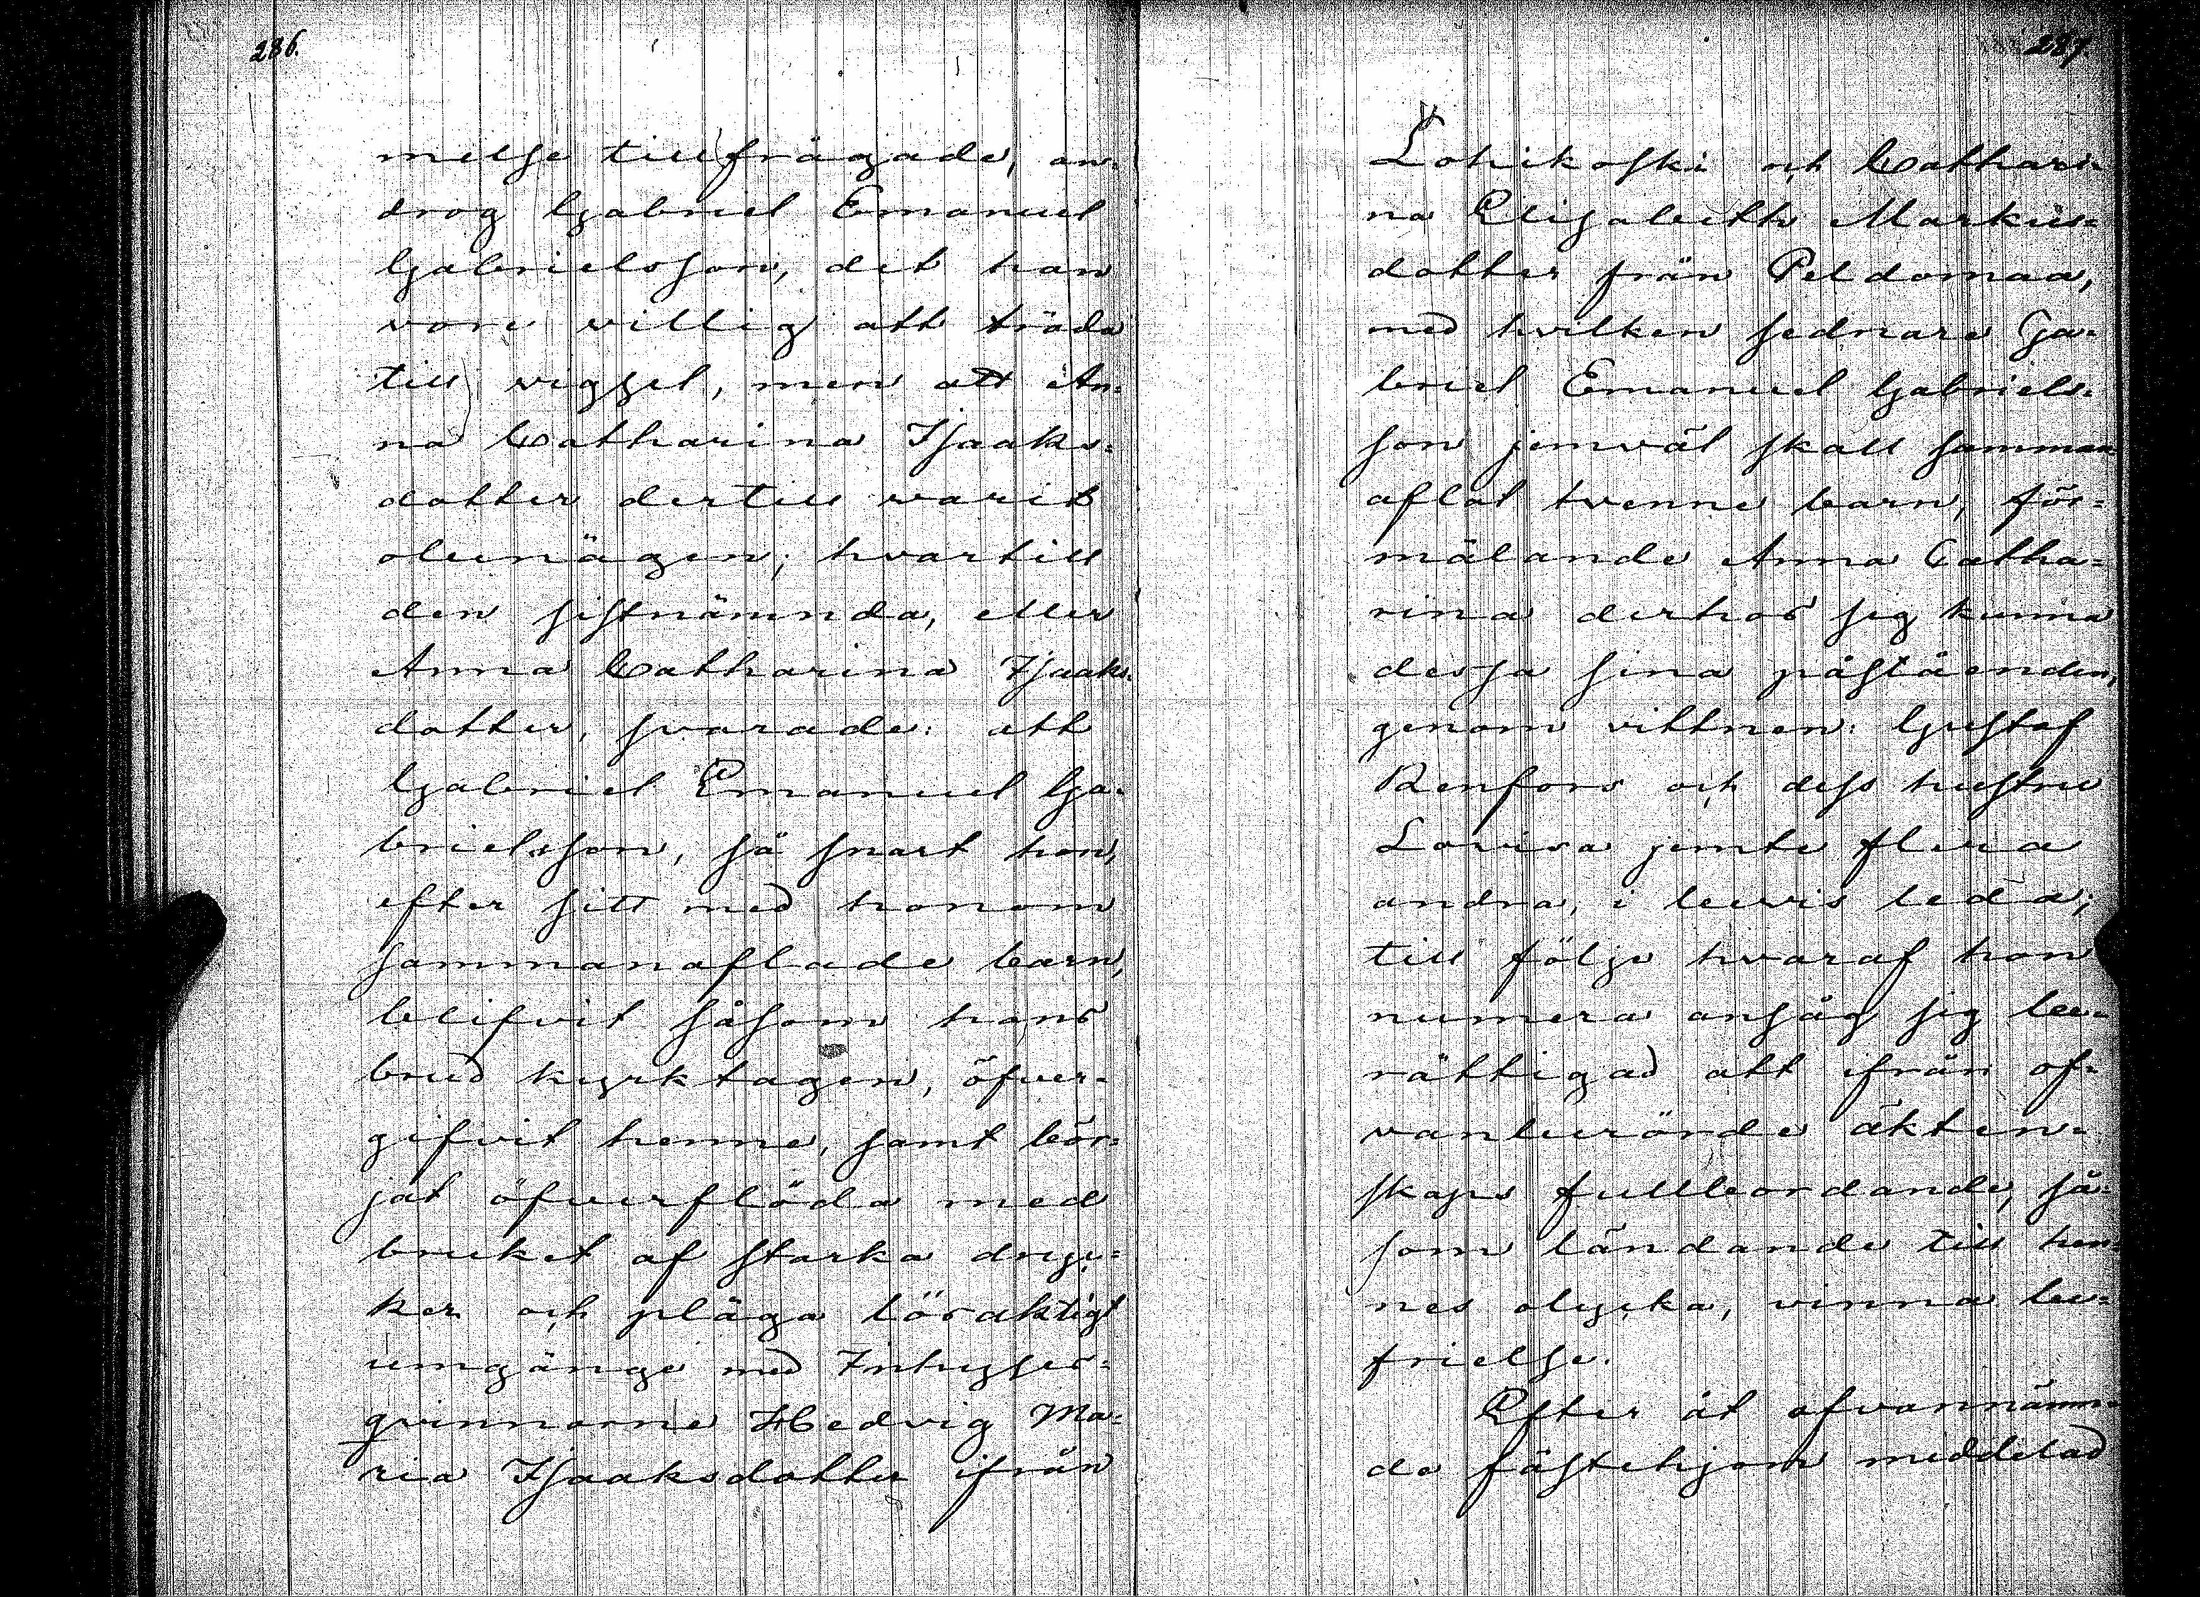 286.
melse tillfrågade, an-
drog Gabriel Emanuel
Gabrielsson, det han
vore villig att träda
till vigsel, men att An-
na Catharina Isaaks-
dotter dertill varit
obenägen; hvartill
den sistnämnda, eller
Anna Catharina Isaaks-
dotter, svarade: att
Gabriel Emanuel Ga-
brielsson, så snart hon,
efter sitt med honom
sammanaflade barn,
blifvit såsom hans
brud kyrktagen, öfver-
gifvit henne, samt bör-
jat öfverflöda med
bruket af starka dryc-
ker och pläga lösaktigt
umgänge med Inhyses-
qvinnorne Hedvig Ma-
ria Isaaksdotter ifrån
287.
Lohikoski och Cathari-
na Elisabeth Markus-
dotter från Peldomaa,
med hvilken sednare Ga-
briel Emanuel Gabriels-
son jemväl skall samman-
aflat tvenne barn, för-
mälande Anna Catha-
rina derhos sig kunna
dessa sina påståenden,
genom vittnen: Gustaf
Renfors och dess hustru
Lovisa jemte flera
andra, i bevis leda;
till följe hvaraf hon
numera ansåg sig be-
rättigad att ifrån of-
vanberörde äkten-
skaps fullbordande, så-
som ländande till hen-
nes olycka, vinna be-
frielse.
Efter åt ofvannämn-
da fästehjon meddelad